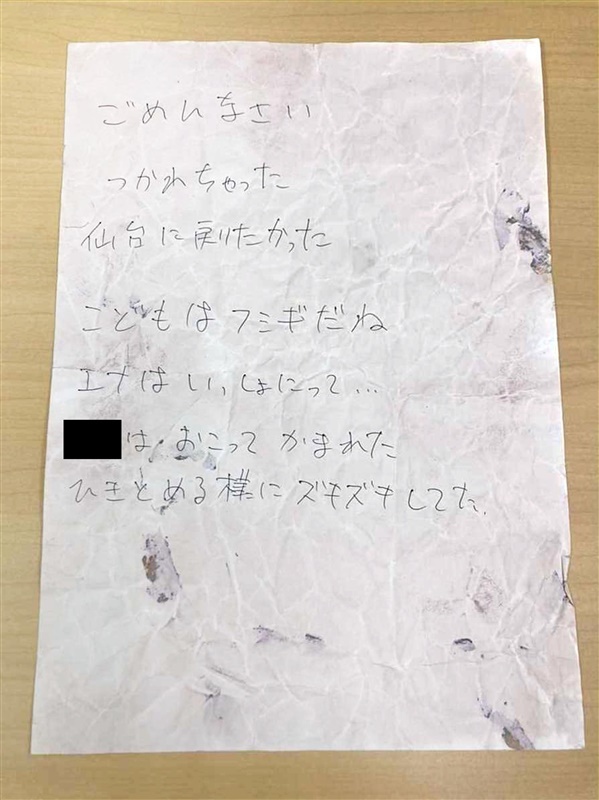 ごめんなさい
つかれちゃった
仙台に戻りたかった
こどもはフシギだね
エナはいっしょにって…
は おこって かまれた
ひきとめる様にズキズキしてた.